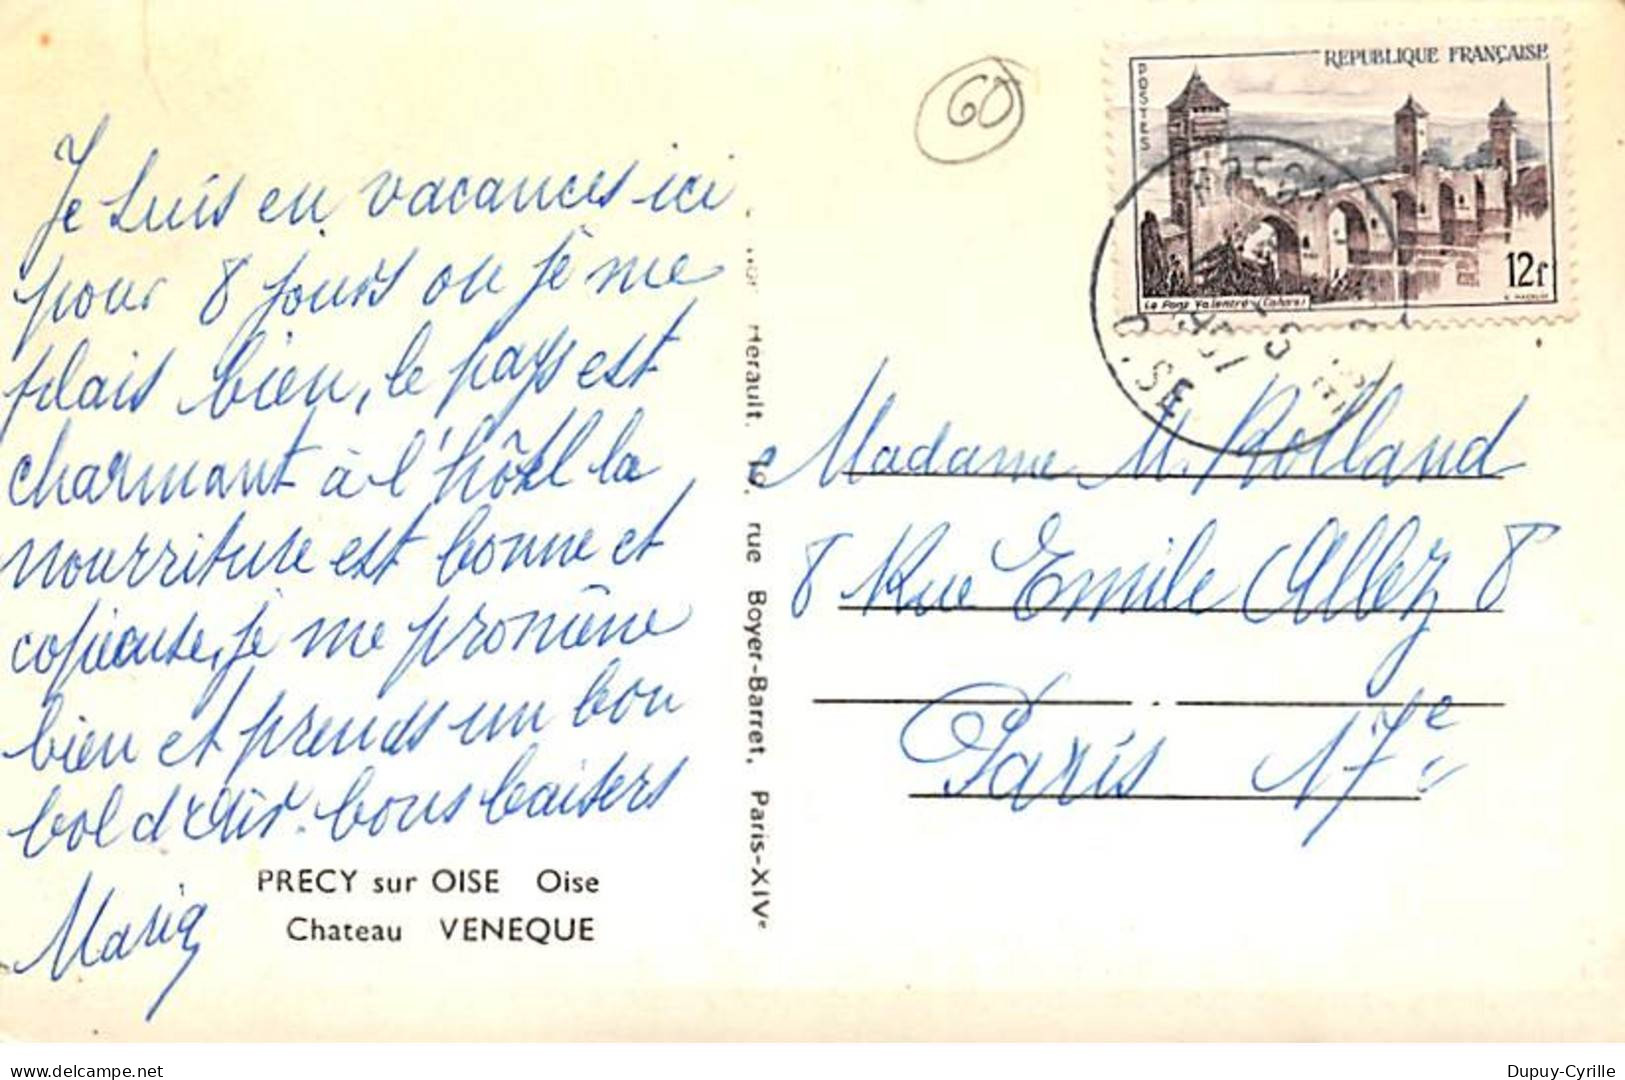 60
REPUBLIQUE FRANÇAISE
POSTES
12f
Le Pont Valentré (Cahors)
OISE
Je suis en vacances ici
pour 8 jours ou je me
plais bien, le pays est
charmant à l'hôtel la
nourriture est bonne et
copieuse, je me promène
bien et prends un bon
bol d'air. bons baisers
Maria
PRECY sur OISE Oise
Chateau VENEQUE
Hérault, 10, rue Boyer-Barret, Paris-XIVe
Madame M. Rolland
8 Rue Emile Allez 8
Paris 17e
delcampe.net
Dupuy-Cyrille